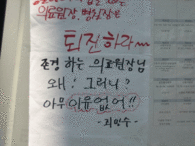 의료원장, 행정실장은
퇴진하라
존경 하는 의료원장님
왜! 그러니?
아무 이유 없어!!
- 최민수 -